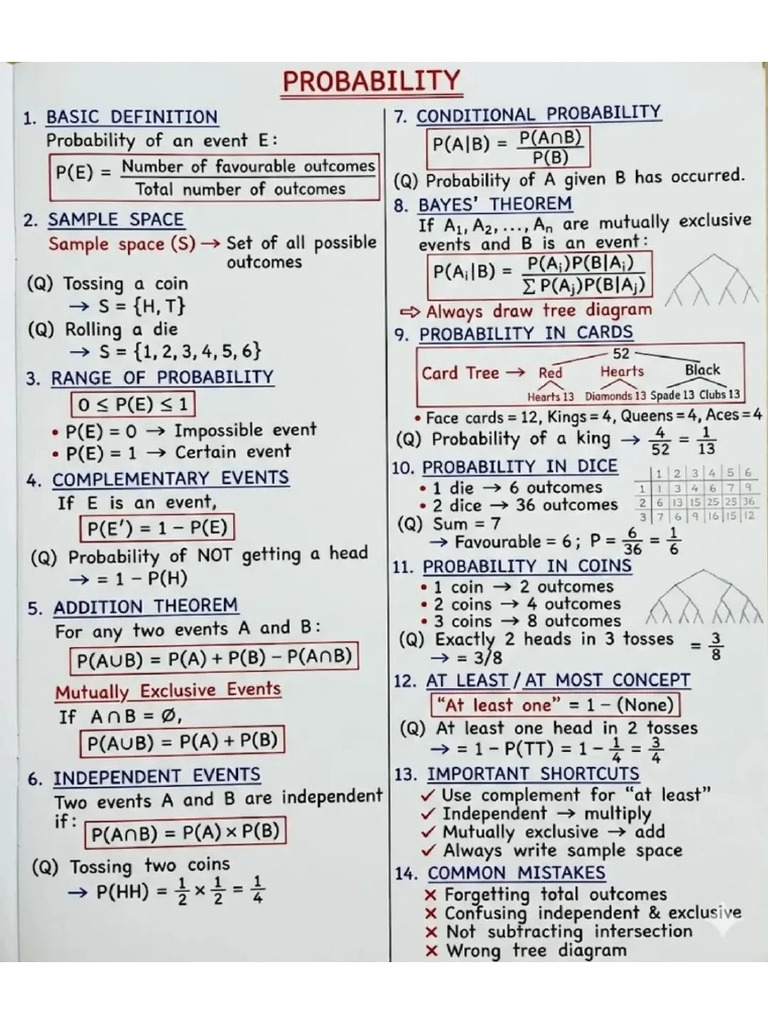 PROBABILITY
1. BASIC DEFINITION
Probability of an event E:
P(E) = Number of favourable outcomes / Total number of outcomes
2. SAMPLE SPACE
Sample space (S) → Set of all possible
outcomes
(Q) Tossing a coin
→ S = {H, T}
(Q) Rolling a die
→ S = {1, 2, 3, 4, 5, 6}
3. RANGE OF PROBABILITY
0 ≤ P(E) ≤ 1
• P(E) = 0 → Impossible event
• P(E) = 1 → Certain event
4. COMPLEMENTARY EVENTS
If E is an event,
P(E') = 1 − P(E)
(Q) Probability of NOT getting a head
→ = 1 − P(H)
5. ADDITION THEOREM
For any two events A and B:
P(A∪B) = P(A) + P(B) − P(A∩B)
Mutually Exclusive Events
If A∩B = Ø,
P(A∪B) = P(A) + P(B)
6. INDEPENDENT EVENTS
Two events A and B are independent
if: P(A∩B) = P(A) × P(B)
(Q) Tossing two coins
→ P(HH) = 1/2 × 1/2 = 1/4
7. CONDITIONAL PROBABILITY
P(A|B) = P(A∩B) / P(B)
(Q) Probability of A given B has occurred.
8. BAYES' THEOREM
If A₁, A₂, ..., Aₙ are mutually exclusive
events and B is an event:
P(Aᵢ|B) = P(Aᵢ)P(B|Aᵢ) / Σ P(Aⱼ)P(B|Aⱼ)
⇨ Always draw tree diagram
9. PROBABILITY IN CARDS
52
Card Tree → Red Hearts Black
Hearts 13 Diamonds 13 Spade 13 Clubs 13
• Face cards = 12, Kings = 4, Queens = 4, Aces = 4
(Q) Probability of a king → 4/52 = 1/13
10. PROBABILITY IN DICE
• 1 die → 6 outcomes
• 2 dice → 36 outcomes
(Q) Sum = 7
→ Favourable = 6; P = 6/36 = 1/6
1 2 3 4 5 6
1 1 3 4 6 7 9
2 6 13 15 25 25 36
3 7 6 9 16 15 12
11. PROBABILITY IN COINS
• 1 coin → 2 outcomes
• 2 coins → 4 outcomes
• 3 coins → 8 outcomes
(Q) Exactly 2 heads in 3 tosses = 3/8
→ = 3/8
12. AT LEAST / AT MOST CONCEPT
“At least one” = 1 − (None)
(Q) At least one head in 2 tosses
→ = 1 − P(TT) = 1 − 1/4 = 3/4
13. IMPORTANT SHORTCUTS
✓ Use complement for “at least”
✓ Independent → multiply
✓ Mutually exclusive → add
✓ Always write sample space
14. COMMON MISTAKES
✗ Forgetting total outcomes
✗ Confusing independent & exclusive
✗ Not subtracting intersection
✗ Wrong tree diagram